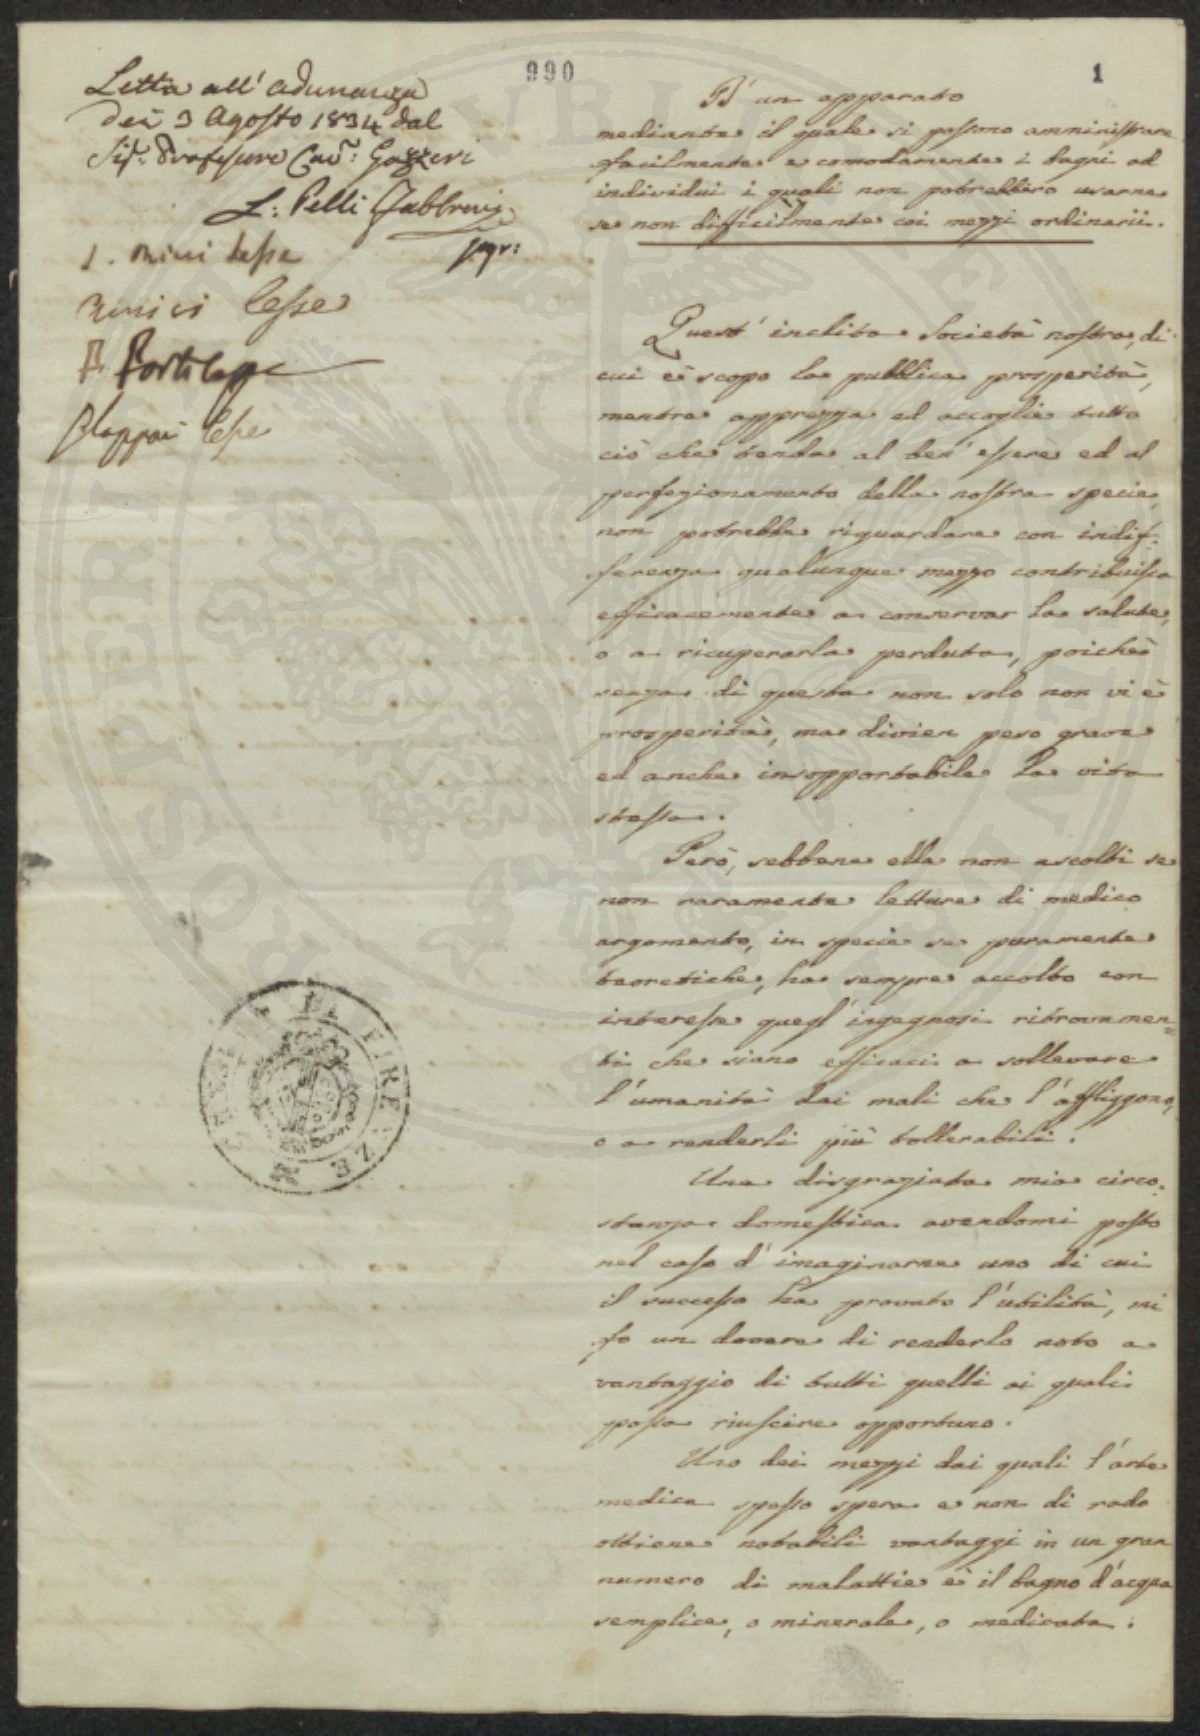 990
1
Letta all' adunanza
dei 3 Agosto 1834 dal
Sig.r Professore Cav.r Gazzeri
L: Pelli Fabbroni
Segr:
lesse
lesse
lesse
lesse
D' un apparato
mediante il quale si possono amministrare
facilmente e comodamente i bagni ad
individui i quali non potrebbero usarne
se non difficilmente coi mezzi ordinarii.
Quest' inclita Società nostra, di
cui è scopo la pubblica prosperità,
mentre apprezza ed accoglie tutto
ciò che tenda al ben' essere ed al
perfezionamento della nostra specie,
non potrebbe riguardare con indif-
ferenza qualunque mezzo contribuisca
efficacemente a conservar la salute,
o a ricuperarla perduta, poichè
senza di questa non solo non vi è
prosperità, ma divien peso grave
ed anche insopportabile la vita
stessa.
Però, sebbene ella non ascolti se
non raramente letture di medico
argomento, in specie se puramente
teoretiche, ha sempre accolto con
interesse quegl' ingegnosi ritrovamen=
ti che siano efficaci a sollevare
l'umanità dai mali che l'affliggono,
o a renderli più tollerabili.
Una disgraziata mia circo-
stanza domestica avendomi posto
nel caso d' imaginarne uno di cui
il successo ha provato l'utilità, mi
fo un dovere di renderlo noto a
vantaggio di tutti quelli ai quali
possa riuscire opportuno.
Uno dei mezzi dai quali l'arte
medica spesso spera e non di rado
ottiene notabili vantaggi in un gran
numero di malattie è il bagno d'acqua
semplice, o minerale, o medicata.